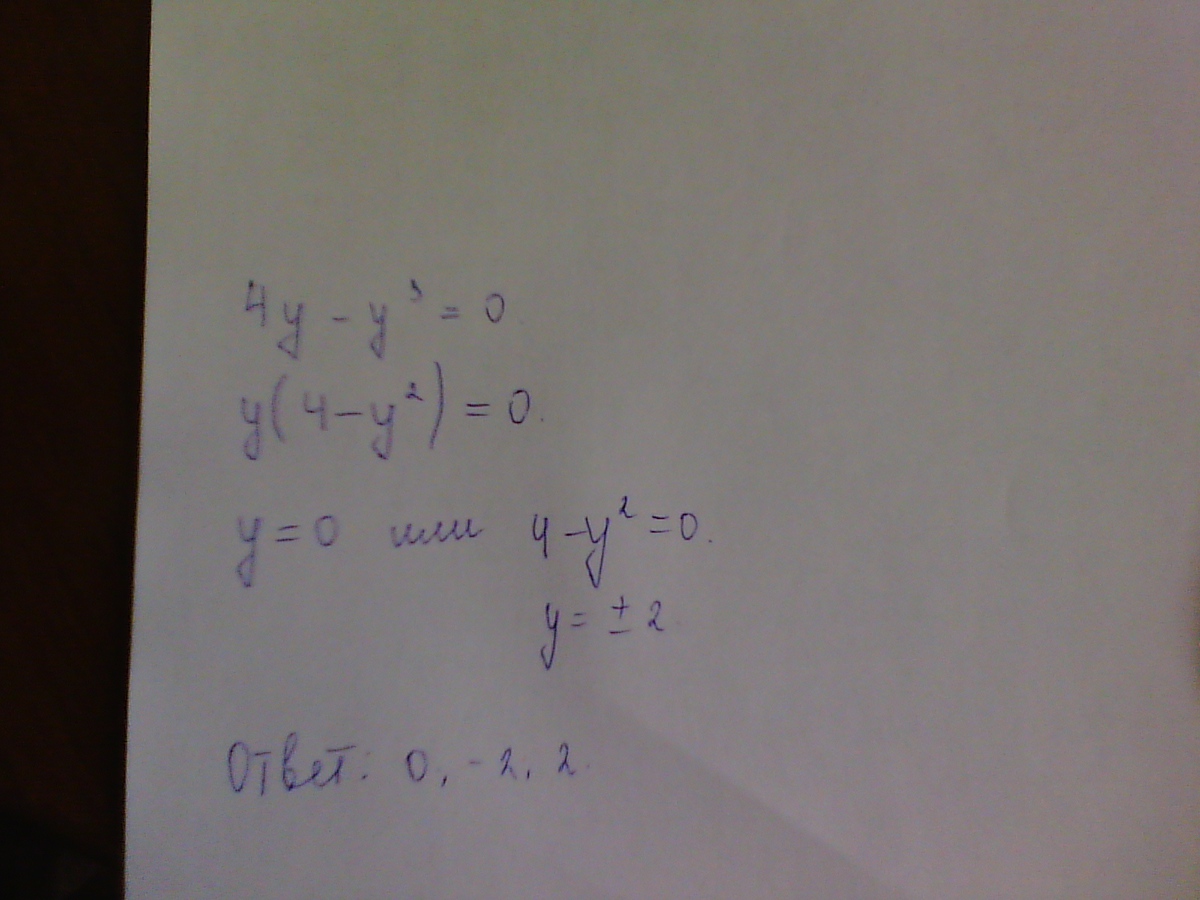 4y - y³ = 0
y(4 - y²) = 0.
y = 0 или 4 - y² = 0.
y = ± 2
Ответ: 0, -2, 2.